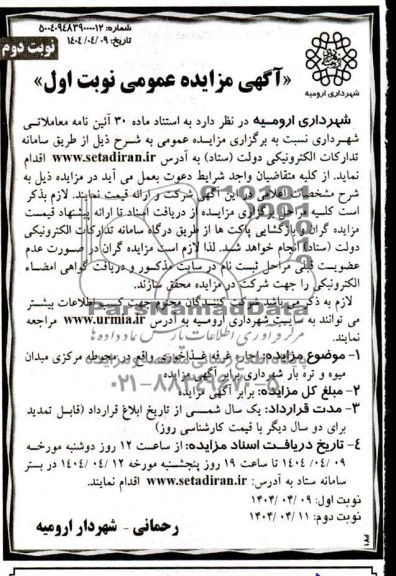 شماره: ۵۰۰۴۰۹۴۸۳۹۰۰۰۰۱۲
تاریخ: ۱۴۰۴/۰۴/۰۹
نوبت دوم
شهرداری ارومیه
«آگهی مزایده عمومی نوبت اول»
شهرداری ارومیه در نظر دارد به استناد ماده ۳۰ آئین نامه معاملاتی
شهرداری نسبت به برگزاری مزایده عمومی به شرح ذیل از طریق سامانه
تدارکات الکترونیکی دولت (ستاد) به آدرس www.setadiran.ir اقدام
نماید. از کلیه متقاضیان واجد شرایط دعوت بعمل می آید در مزایده ذیل به
شرح مشخصات اعلامی در این آگهی شرکت و ارائه قیمت نمایند. لازم بذکر
است کلیه مراحل برگزاری مزایده از دریافت اسناد تا ارائه پیشنهاد قیمت
مزایده گران و بازگشایی پاکت ها از طریق درگاه سامانه تدارکات الکترونیکی
دولت (ستاد) انجام خواهد شد. لذا لازم است مزایده گران در صورت عدم
عضویت قبلی مراحل ثبت نام در سایت مذکور و دریافت گواهی امضاء
الکترونیکی را جهت شرکت در مزایده محقق سازند.
لازم به ذکر می باشد شرکت کنندگان محترم جهت کسب اطلاعات بیشتر
می توانند به سایت شهرداری ارومیه به آدرس www.urmia.ir مراجعه
نمایند.
ParsNamadData
۱- موضوع مزایده: اجاره غرفه غذاخوری واقع در محوطه مرکزی میدان
میوه و تره بار شهرداری برابر آگهی مزایده
۰۲۱-۸۸۳۴۹۶۷۰-۵
۲- مبلغ کل مزایده: برابر آگهی مزایده
۳- مدت قرارداد: یک سال شمسی از تاریخ ابلاغ قرارداد (قابل تمدید
برای دو سال دیگر با قیمت کارشناسی روز)
۴- تاریخ دریافت اسناد مزایده: از ساعت ۱۲ روز دوشنبه مورخه
۱۴۰۴/۰۴/۰۹ تا ساعت ۱۹ روز پنجشنبه مورخه ۱۴۰۴/۰۴/۱۲ در بستر
سامانه ستاد به آدرس: www.setadiran.ir اقدام نمایند.
نوبت اول: ۱۴۰۴/۰۴/۰۹
نوبت دوم: ۱۴۰۴/۰۴/۱۱
رحمانی - شهردار ارومیه